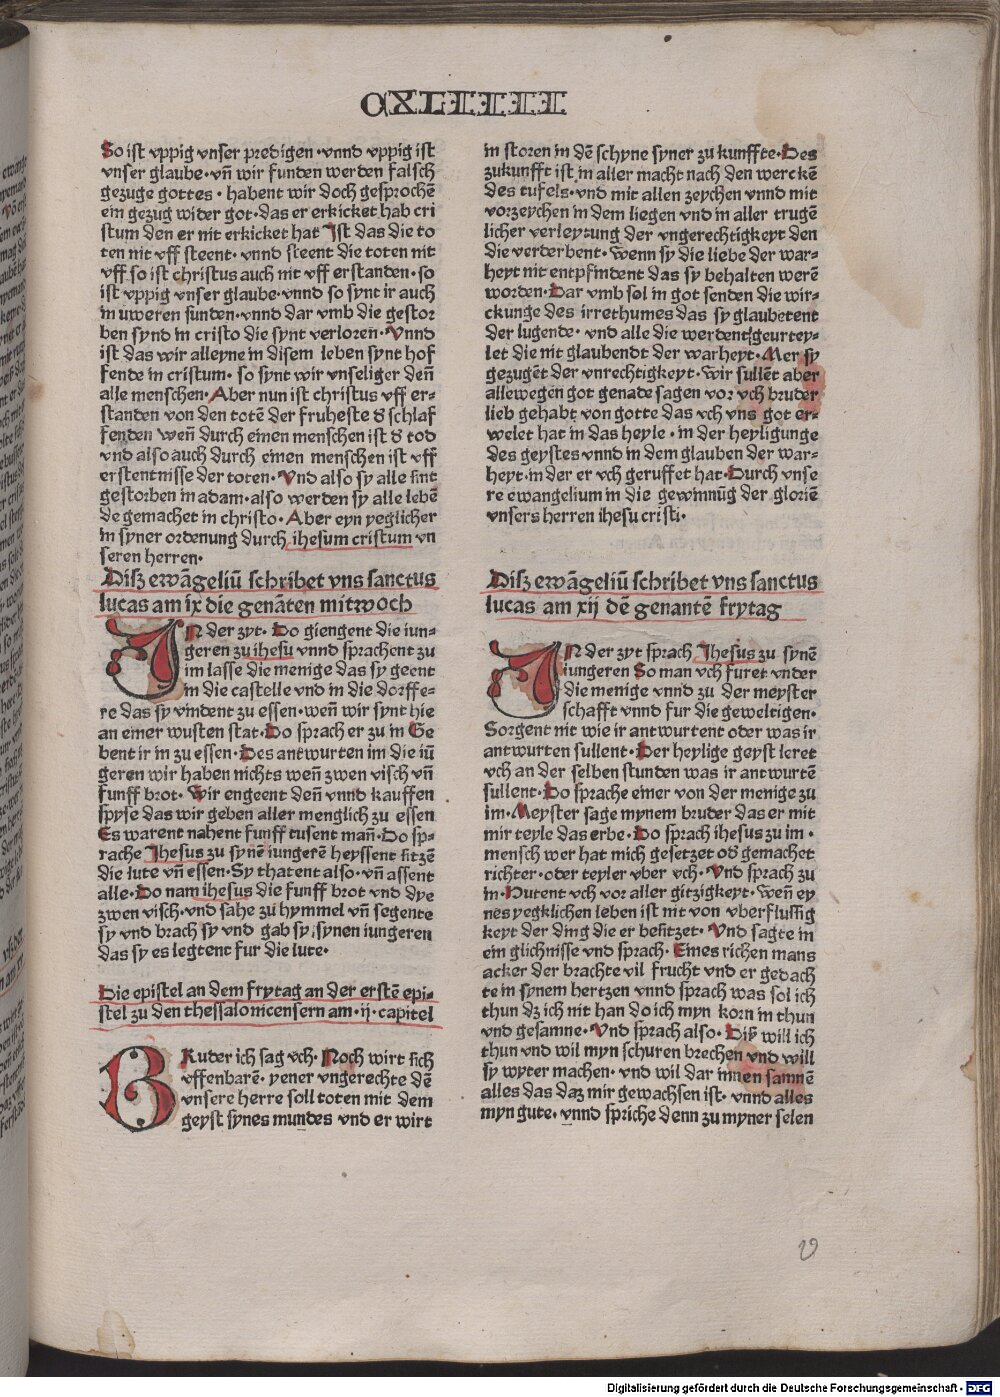 CXLIIIII
So ist vppig vnser predigen · vnnd vppig ist
vnser glaube · vn̄ wir funden werden falsch
gezuge gottes · habent wir doch gesprochē
ein gezug wider got · das er erkicket hab cri
stum den er nit erkicket hat Ist das die to
ten nit vff steent · vnnd steent die toten nit
vff so ist christus auch nit vff erstanden · so
ist vppig vnser glaube · vnnd so synt ir auch
in uweren sunden · vnnd dar vmb die gestor
ben synd in cristo die synt verloren̄ · Vnnd
ist das wir alleyne in disem leben synt hof
fende in cristum · so synt wir vnseliger den̄
alle menschen · Aber nun ist christus vff er-
standen von den totē der fruheste d̄ schlaf
fenden wen̄ durch einen menschen ist d̄ tod
vnd also auch durch einen menschen ist vff
erstentnisse der toten · Vnd also sy alle sint
gestorben in adam · also werden sy alle lebē
de gemachet in christo · Aber eyn yeglicher
in syner ordenung durch ihesum cristum vn
seren herren ·
Disz ewāgeliū schribet vns sanctus
lucas am ix die genāten mitwoch
IN der zyt · Do giengent die iun-
geren zu ihesu vnnd sprachent zu
im lasse die menige das sy geent
in die castelle vnd in die dorffe-
re das sy vindent zu essen · wen̄ wir synt hie
an einer wusten stat · Do sprach er zu in Ge
bent ir in zu essen · Des antwurten im die iū
geren wir haben nichts wen̄ zwen visch vn̄
funff brot · Wir engeent den̄ vnnd kauffen
spyse das wir geben aller menglich zu essen
Es warent nahent funff tusent man̄ · Do sp-
rache Ihesus zu synē iungerē heyssent sitzē
die lute vn̄ essen · Sy thatent also · vn̄ assent
alle · Do nam ihesus die funff brot vnd dye
zwen visch · vnd sahe zu hymmel vn̄ segente
sy vnd brach sy vnd gab sy synen iungeren
das sy es legtent fur die lute ·
Die epistel an dem frytag an der erstē epi-
stel zu den thessalonicensern am · ij · capitel
BRuder ich sag vch · Noch wirt sich
vffenbarē · yener vngerechte dē
vnsere herre soll toten mit dem
geyst synes mundes vnd er wirt
in storen in dē schyne syner zu kunffte · Des
zukunfft ist in aller macht nach den werckē
des tufels · vnd mit allen zeychen vnnd mit
vorzeychen in dem liegen vnd in aller trugē
licher verleytung der vngerechtigkeyt den
die verderbent · Wenn sy die liebe der war-
heyt nit entpfindent das sy behalten werē
worden · Dar vmb sol in got senden die wir-
ckunge des irrethumes das sy glaubetent
der lugende · vnd alle die werdent geurtey-
let die nit glaubendt der warheyt · Mer sy
gezugēt der vnrechtigkeyt · Wir sullēt aber
allewegen got genade sagen vor vch bruder
lieb gehabt von gotte das vch vns got er-
welet hat in das heyle · in der heyligunge
des geystes vnnd in dem glauben der war-
heyt · in der er vch geruffet hat · Durch vnse
re ewangelium in die gewinnūg der gloriē
vnsers herren ihesu cristi ·
Disz ewāgeliū schribet vns sanctus
lucas am xij dē genantē frytag
IN der zyt sprach Ihesus zu synē
iungeren So man vch furet vnder
die menige vnnd zu der meyster
schafft vnnd fur die geweltigen ·
Sorgent nit wie ir antwurtent oder was ir
antwurten sullent · Der heylige geyst leret
vch an der selben stunden was ir antwurtē
sullent · Do sprache einer von der menige zu
im · Meyster sage mynem bruder das er mit
mir teyle das erbe · Do sprach ihesus zu im ·
mensch wer hat mich gesetzet od̄ gemachet
richter · oder teyler vber vch · Vnd sprach zu
in · Hutent vch vor aller gitzigkeyt · Wen̄ ey
nes yegklichen leben ist nit von vberflussig
keyt der ding die er besitzet · Vnd sagte in
ein glichnisse vnd sprach · Eines richen mans
acker der brachte vil frucht vnd er gedach
te in synem hertzen vnnd sprach was sol ich
thun dz ich nit han do ich myn korn in thun
vnd gesamne · Vnd sprach also · Disz will ich
thun vnd wil myn schuren brechen vnd will
sy wyter machen · vnd wil dar innen samnē
alles das daz mir gewachsen ist · vnnd alles
myn gute · vnnd spriche denn zu myner selen
Digitalisierung gefördert durch die Deutsche Forschungsgemeinschaft - DFG